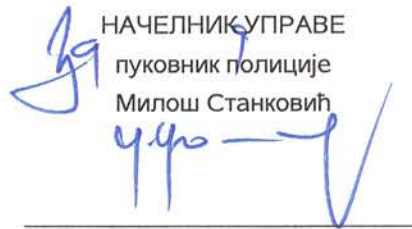 За НАЧЕЛНИК УПРАВЕ
пуковник полиције
Милош Станковић